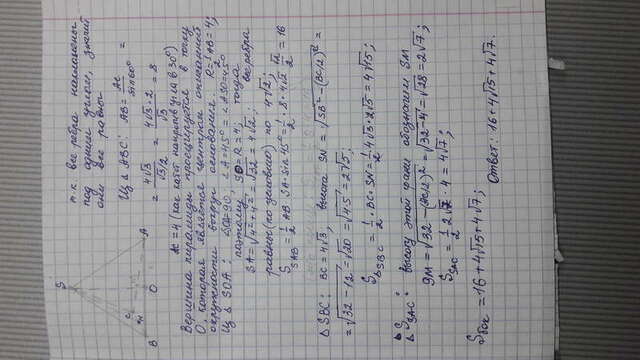 S
A
O
B
C
M
т.к. все ребра наклонены
под одним углом, значит
они все равны
Из △ ABC: AB = AC / sin60° =
= 4√3 / √3/2 = 4√3·2 / √3 = 8
AC = 4 (как катет напротив угла в 30°)
Вершина пирамиды проецируется в точку
O, которая является центром описанной
окружности вокруг основания R = 1/2 AB = 4;
Из △ SOA: ∠SOA = 90°, ∠A = 45° = ∠ASO = 45°
поэтому SO = R = 4, тогда
SA = √4²+4² = √32 = 4√2, все ребра
равны (по условию) по 4√2;
S SAB = 1/2 AB · SA · sin 45° = 1/2 · 8 · 4√2 · √2/2 = 16
△ SBC: BC = 4√3, высота SN = √SB² - (BC/2)² =
= √32 - 12 = √20 = √4·5 = 2√5;
S△SBC = 1/2 · BC · SN = 1/2 4√3 · 2√5 = 4√15;
△ SAC: высоту этой грани обозначим SM
SM = √32 - (AC/2)² = √32 - 4 = √28 = 2√7;
S SAC = 1/2 2√7 · 4 = 4√7;
Sбок = 16 + 4√15 + 4√7;
Ответ: 16 + 4√15 + 4√7.